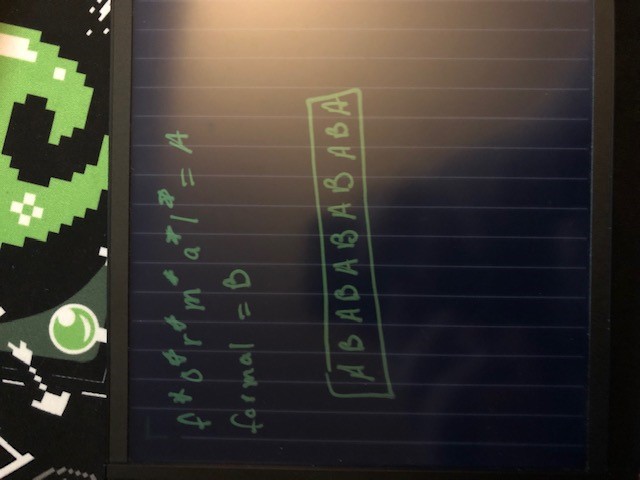 f* o* r* m* a* l* = A
formal = B
A B A B A B A B A B A